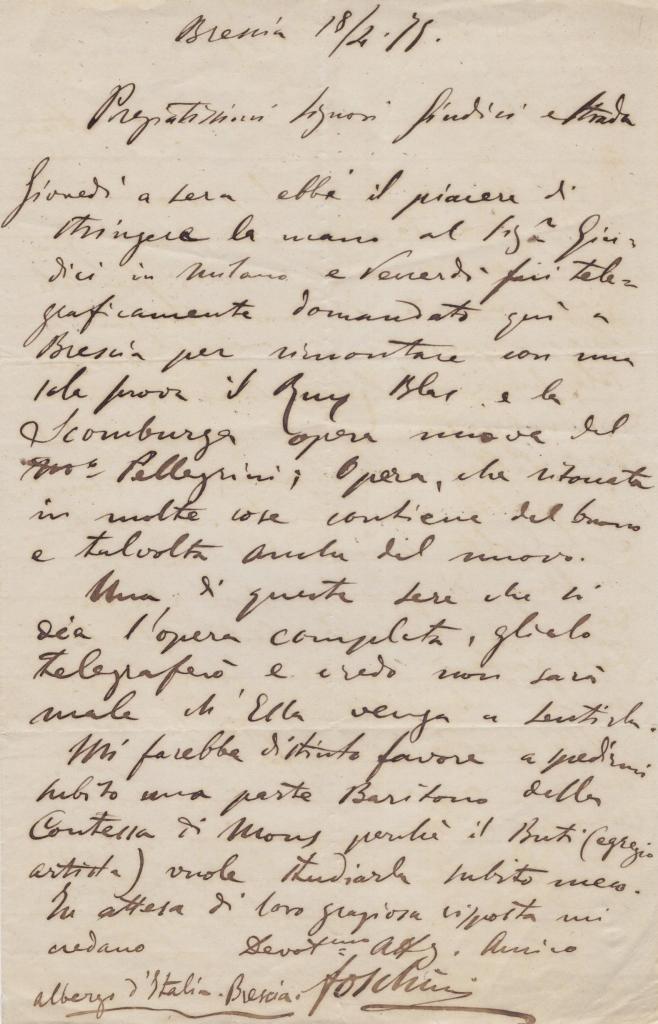 Brescia 18/2.75.
Pregiatissimi Signori Giudici e Strada
Giovedì a sera ebbi il piacere di
stringere la mano al Sigr Giu=
dici in Milano e Venerdì fui tele=
graficamente domandato quì a
Brescia per rimontare con una
sola prova il Ruy Blas e la
Scomburga opera nuova del
Pellegrini; Opera, che ritoccata
in molte cose contiene del buono
e talvolta anche del nuovo.
Una di queste sere che si
dia l'opera completa, glielo
telegraferò e credo non sarà
male ch'Ella venga a sentirla.
Mi farebbe distinto favore a spedirmi
subito una parte Baritono della
Contessa di Mons perchè il Buti (egregio
artista) vuole studiarla subito meco.
In attesa di loro graziosa risposta mi
credano Devotmo Affz. Amico
albergo d'Italia. Brescia. Foschini